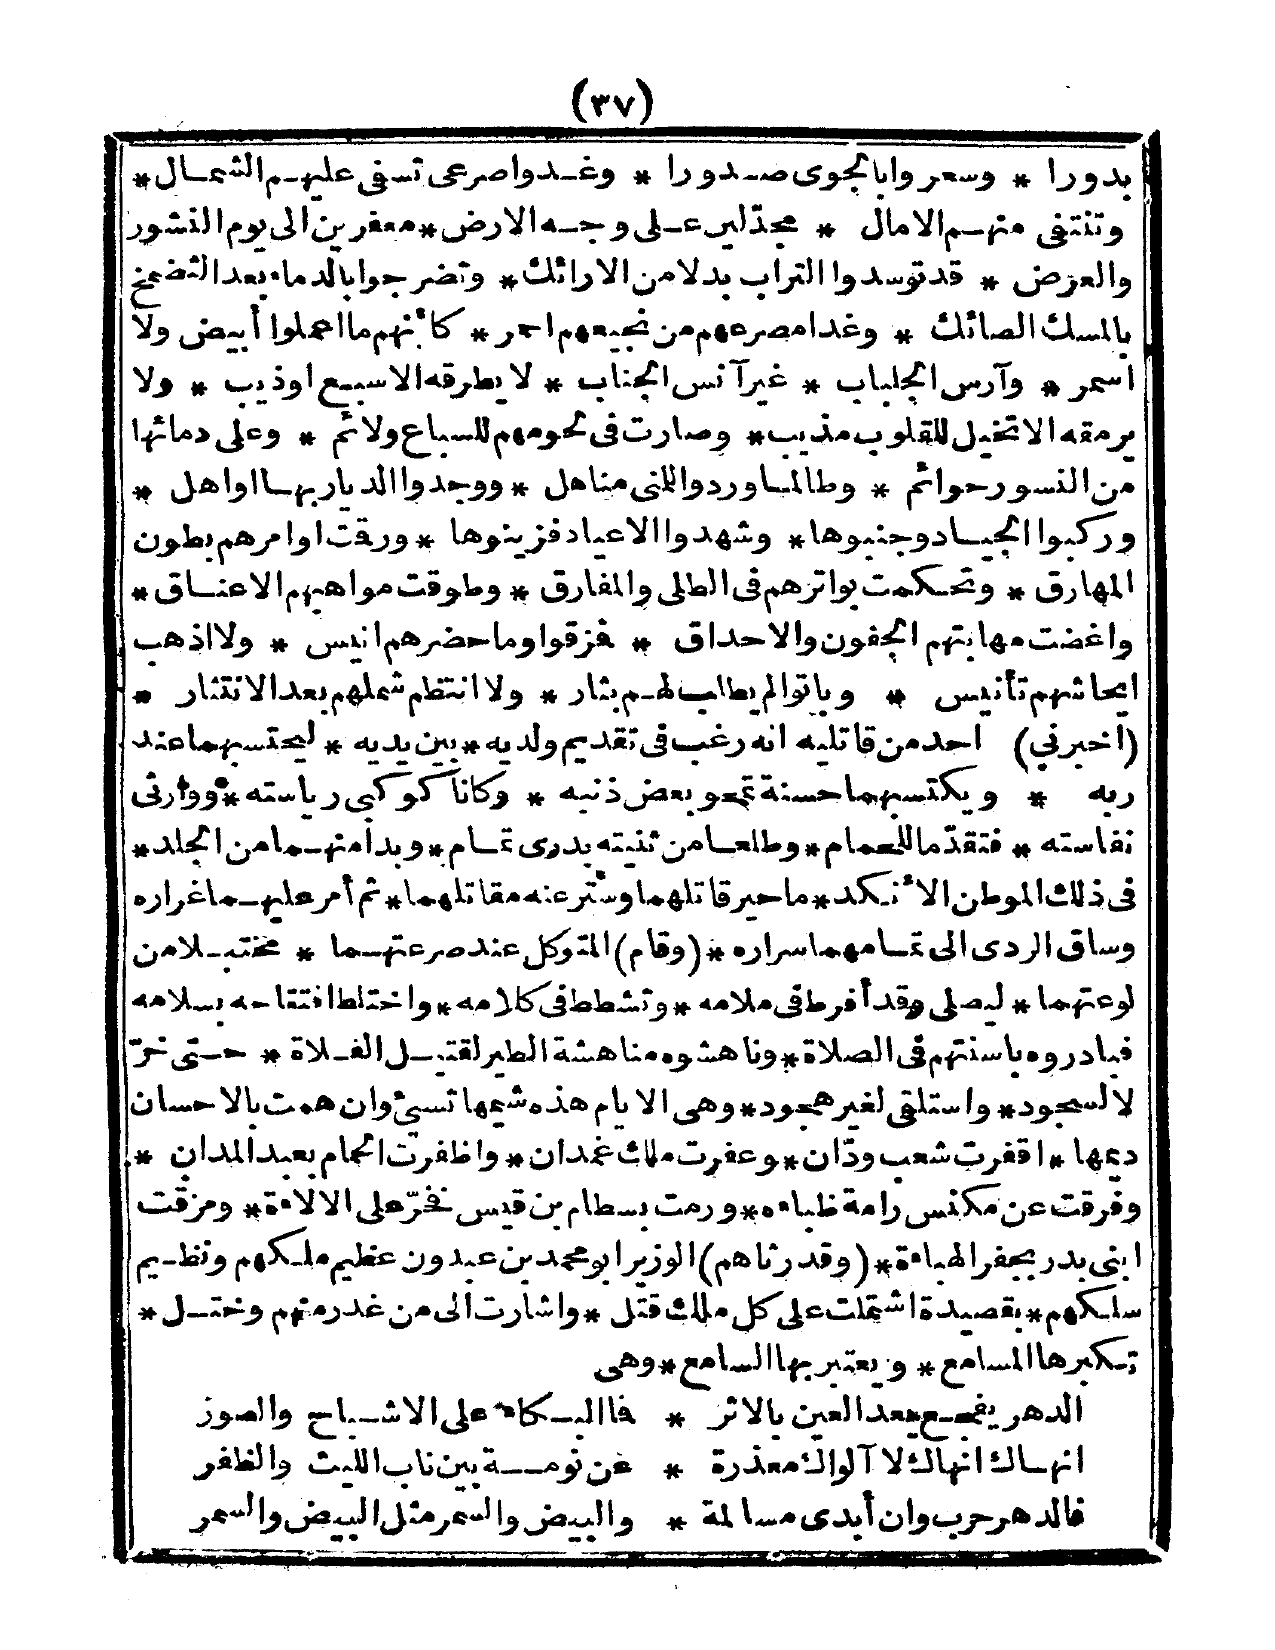 (٣٧)
بدورا * وسعر وا بالجوى صدورا * وغدوا صرعى تسفى عليهم الشمال *
وتنتفى منهم الامال * مجدّلين على وجه الارض * معفرين الى يوم النشور
والعرض * قد توسدوا التراب بدلا من الارائك * وتضرجوا بالدماء بعد التضمخ
بالمسك الصائك * وغدا مصرعهم من نجيعهم احمر * كأنهم ما اعملوا أبيض ولا
اسمر * وآرس الجلباب * غير آنس الجناب * لا يطرقه الا سبيع اوذيب * ولا
يرمقه الا تخيل للقلوب مذيب * وصارت فى لحومهم للسباع ولائم * وعلى دمائها
من النسور حوائم * وطالما وردوا للنى مناهل * ووجدوا الديار بها اواهل *
وركبوا الجياد وجنبوها * وشهدوا الاعياد فزينوها * ورقت اوامرهم بطون
المهارق * وتحكمت بواترهم فى الطلى والمفارق * وطوقت مواهبهم الاعناق *
واغضت مهابتهم الجفون والاحداق * فمزقوا وما حضرهم انيس * ولا اذهب
ايحاشهم تأنيس * وباتوا لم يطالب لهم بثار * ولا انتظم شملهم بعد الانتثار *
(اخبرني) احد من قاتليه انه رغب فى تقديم ولديه * بين يديه * ليحتسبهما عند
ربه * ويكتسبهما حسنة تمحو بعض ذنبه * وكانا كوكبى رياسته * ووارثى
نفاسته * فتقدّما للحمام * وطلعا من ثنيته بدرى تمام * وبدا منهما من الجلد *
فى ذلك الموطن الأنكد * ما حير قاتلهما وستر عنه مقاتلهما * ثم أمر عليهما غراره
وساق الردى الى تمامهما سراره * (وقام) المتوكل عند صرعتهما * مختبلا من
لوعتهما * ليصلى وقد أفرط فى ملامه * وتشطط فى كلامه * واختلط افتتاحه بسلامه
فبادروه باسنتهم فى الصلاة * وناهشوه مناهشة الطير لقتيل الفلاة * حتى خرّ
لا لسجود * واستلقى لغير هجود * وهى الايام هذه شيمها تسئ وان همت بالاحسان
ديمها * اقفرت شعب ودّان * وعفرت ملك غمدان * واظفرت الحمام بعبد المدان *
وفرقت عن مكنس رامة ظباءه * ورمت بسطام بن قيس فخرّ على الالاءة * ومزقت
ابنى بدر بجفر الهباءة * (وقد رثاهم) الوزير ابو محمد بن عبدون عظيم ملكهم ونظيم
سلكهم * بقصيدة اشتملت على كل ملك قتل * واشارت الى من غدر منهم وختل *
تكبرها المسامع * ويعتبر بها السامع * وهى
الدهر يفجع بعد العين بالاثر * فما البكاء على الاشباح والصور
انهاك انهاك لا آلوك معذرة * عن نومة بين ناب الليث والظفر
فالدهر حرب وان أبدى مسالمة * والبيض والسمر مثل البيض والسمر